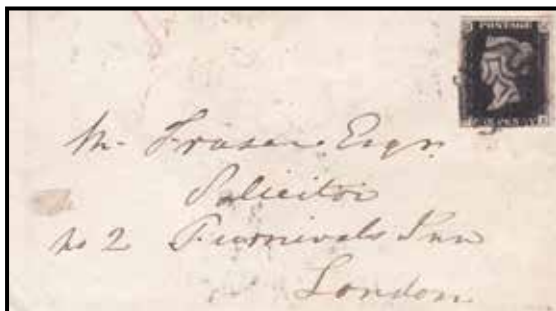 POSTAGE
M. Fraser Esqr.
Solicitor
No 2 Furnivals Inn
London